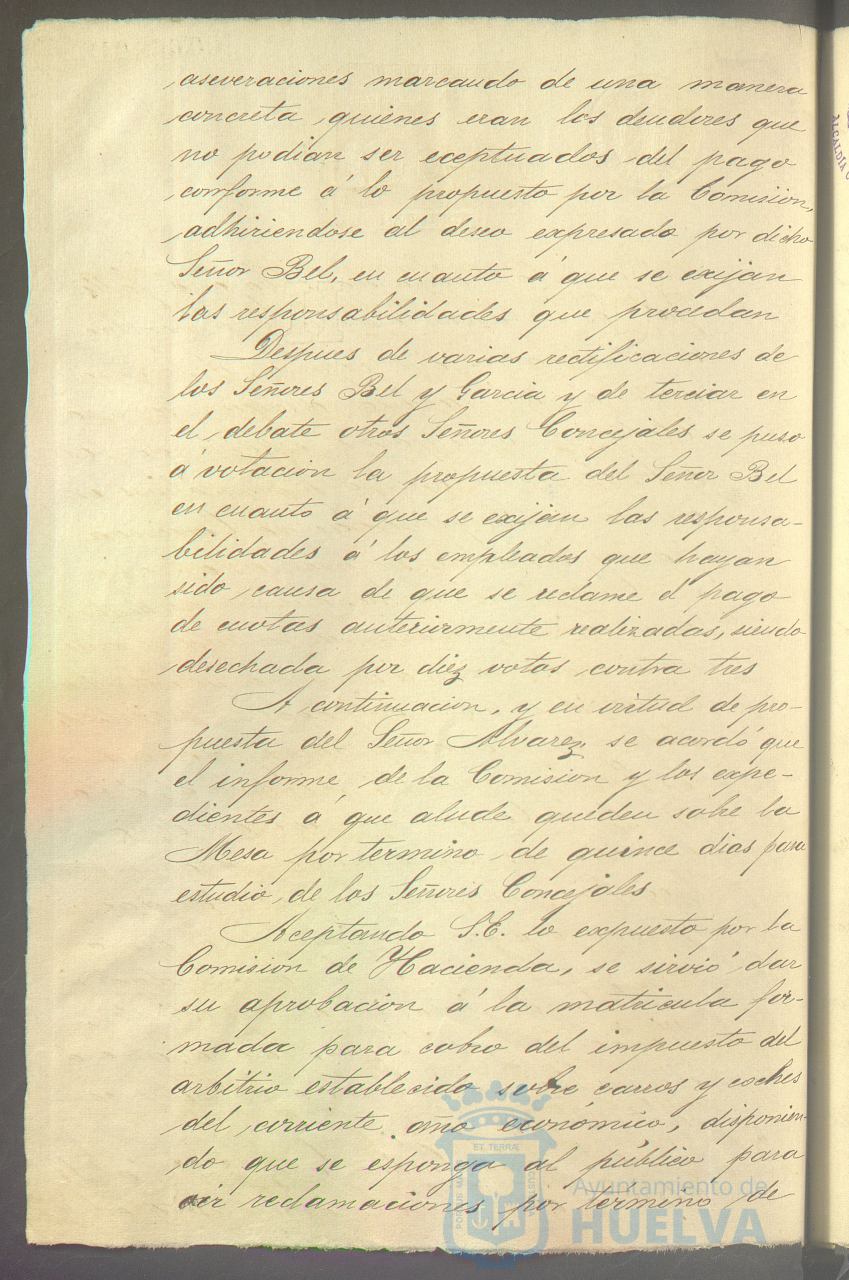 aseveraciones marcando de una manera
concreta quienes eran los deudores que
no podian ser eceptuados del pago
conforme á lo propuesto por la Comision,
adhiriendose al deseo expresado por dicho
Señor Bel, en cuanto á que se exijan
las responsabilidades que procedan
Despues de varias rectificaciones de
los Señores Bel y Garcia y de terciar en
el debate otros Señores Concejales se puso
á votacion la propuesta del Señor Bel
en cuanto á que se exijan las responsa-
bilidades á los empleados que hayan
sido causa de que se reclame el pago
de cuotas anteriormente realizadas, siendo
desechada por diez votos contra tres
A continuacion, y en virtud de pro-
puesta del Señor Alvarez, se acordó que
el informe de la Comision y los expe-
dientes á que alude queden sobre la
Mesa por termino de quince dias para
estudio de los Señores Concejales
Aceptando S.E. lo expuesto por la
Comision de Hacienda, se sirvió dar
su aprobacion á la matricula for-
mada para cobro del impuesto del
arbitrio establecido sobre carros y coches
del corriente año económico, disponien-
do que se esponga al público para
oir reclamaciones por termino de
ALCALDÍA
ET TERRAE
PORTUS MARIS
CUSTODIA
Ayuntamiento de
HUELVA